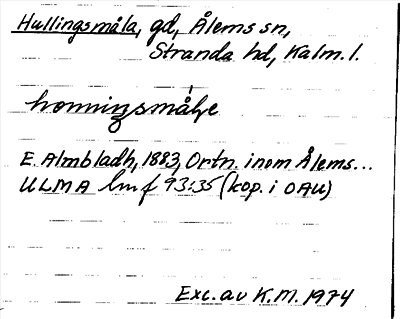 Hullingsmåla, gd, Ålems sn,
Stranda hd, Kalm. l.
E. Almbladh, 1883, Ortn. inom Ålems...
ULMA hmf 93:35 (kop. i OAU)
Exc. av K.M. 1974